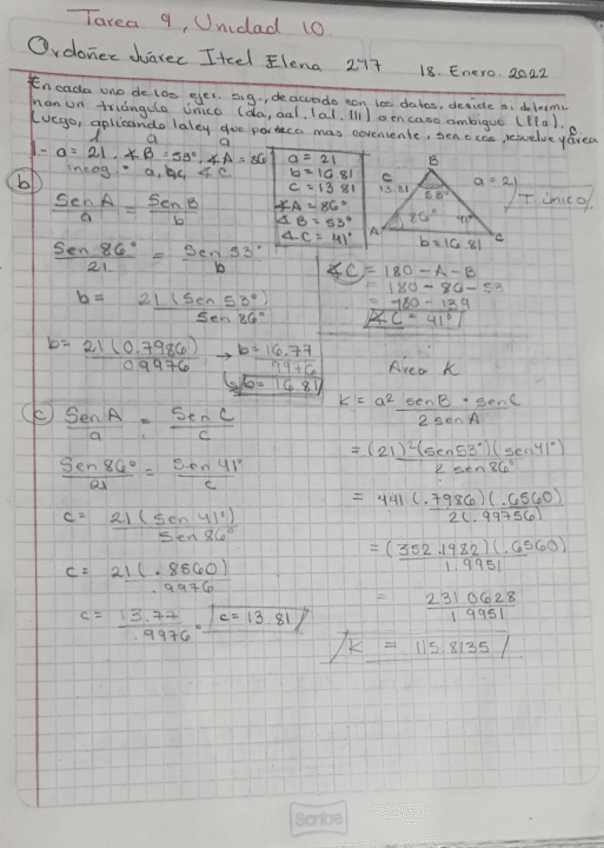 Tarea 9, Unidad 10.
Ordoñez Juárez Itcel Elena 247 18. Enero. 2022
En cada uno de los ejer. sig., de acuerdo con los datos, decide si determi
nan un triángulo único (
o en caso ambiguo (lla).
Luego, aplicando la ley que parezca mas
resuelve y área
l a a
1.- a = 21, ∡B = 53°, ∡A = 86°
incog: a, b, c, ∡C
a = 21
b = 16.81
c = 13.81
∡A = 86°
∡B = 53°
∡C = 41°
B
c
13.81
a = 21
53°
86°
41°
A
C
b = 16.81
T único
b
Sen A = Sen B
a b
Sen 86° = Sen 53°
21 b
b = 21 (Sen 53°)
Sen 86°
b = 21 (0.7986) → b = 16.77
0.9976 .9976
b = 16.81
∡C = 180 - A - B
= 180 - 86 - 53
= 180 - 139
∡C = 41°
c
Sen A = Sen C
a c
Sen 86° = Sen 41°
21 c
c = 21 (Sen 41°)
Sen 86°
c = 21 (.8560)
.9976
c = 13.77 = c = 13.81
.9976
Área K
K = a² sen B · sen C
2 sen A
= (21)² (sen 53°) (sen 41°)
2 sen 86°
= 441 (.7986) (.6560)
2 (.99756)
= (352.1982) (.6560)
1.9951
= 231.0628
1.9951
K = 115.8135
Scribe